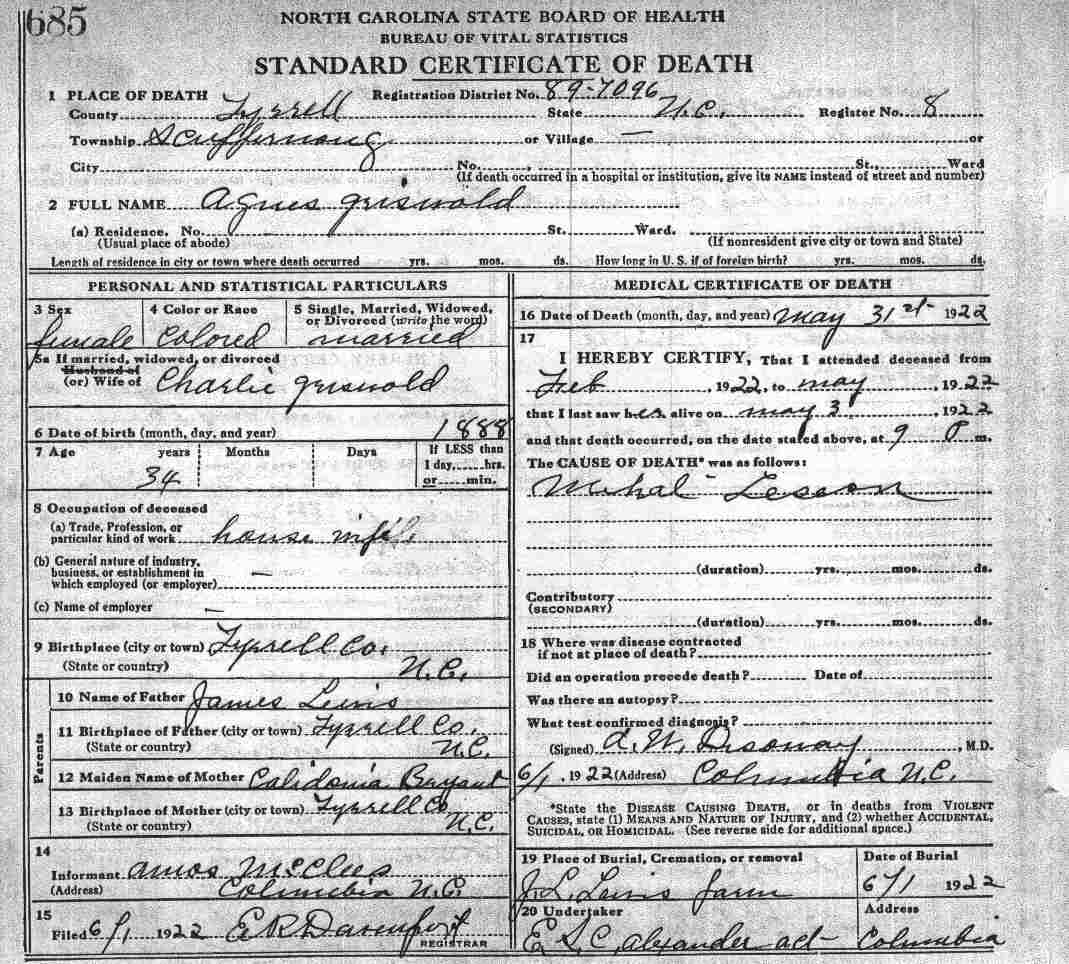 685
NORTH CAROLINA STATE BOARD OF HEALTH
BUREAU OF VITAL STATISTICS
STANDARD CERTIFICATE OF DEATH
1 PLACE OF DEATH Registration District No. 89-7096
County Tyrrell State N.C. Register No. 8
Township Scuppernong or Village — or
City No. St., Ward
(If death occurred in a hospital or institution, give its NAME instead of street and number)
2 FULL NAME Agnes Griswold
(a) Residence. No. St. Ward.
(Usual place of abode) (If nonresident give city or town and State)
Length of residence in city or town where death occurred yrs. mos. ds. How long in U.S. if of foreign birth? yrs. mos. ds.
PERSONAL AND STATISTICAL PARTICULARS
3 Sex 4 Color or Race 5 Single, Married, Widowed, or Divorced (write the word)
female Colored married
5a If married, widowed, or divorced
Husband of
(or) Wife of Charlie Griswold
6 Date of birth (month, day, and year) 1888
7 Age years Months Days If LESS than
1 day, hrs.
34 or min.
8 Occupation of deceased
(a) Trade, Profession, or
particular kind of work house wife
(b) General nature of industry,
business, or establishment in
which employed (or employer) —
(c) Name of employer —
9 Birthplace (city or town) Tyrrell Co.
(State or country) N.C.
Parents
10 Name of Father James Lewis
11 Birthplace of Father (city or town) Tyrrell Co.
(State or country) N.C.
12 Maiden Name of Mother Calidonia Bryant
13 Birthplace of Mother (city or town) Tyrrell Co
(State or country) N.C.
14
Informant Amos McClees
(Address) Columbia N.C.
15
Filed 6/1 1922 E R Davenport
REGISTRAR
MEDICAL CERTIFICATE OF DEATH
16 Date of Death (month, day, and year) May 31st 1922
17
I HEREBY CERTIFY, That I attended deceased from
Feb , 1922, to May , 1922
that I last saw her alive on May 3 , 1922
and that death occurred, on the date stated above, at 9 P m.
The CAUSE OF DEATH* was as follows:
Mitral
(duration) yrs. mos. ds.
Contributory
(SECONDARY)
(duration) yrs. mos. ds.
18 Where was disease contracted
if not at place of death?
Did an operation precede death? Date of
Was there an autopsy?
What test confirmed diagnosis?
(Signed) , M.D.
6/1 , 1922 (Address) Columbia N.C.
*State the DISEASE CAUSING DEATH, or in deaths from VIOLENT
CAUSES, state (1) MEANS AND NATURE OF INJURY, and (2) whether ACCIDENTAL,
SUICIDAL, OR HOMICIDAL. (See reverse side for additional space.)
19 Place of Burial, Cremation, or removal Date of Burial
J. L. Lewis farm 6/1 1922
20 Undertaker Address
E S C Alexander act Columbia